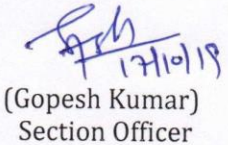 17/10/19
(Gopesh Kumar)
Section Officer